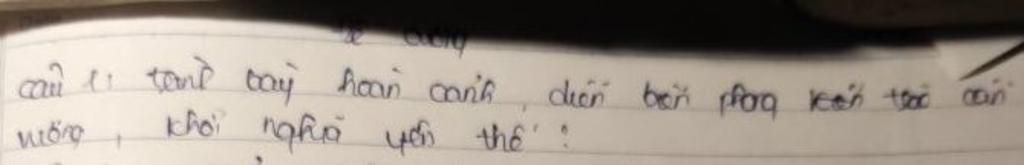 đề cương
câu 1: trình bày hoàn cảnh, diễn biến phong trào cần
vương, khởi nghĩa yên thế: